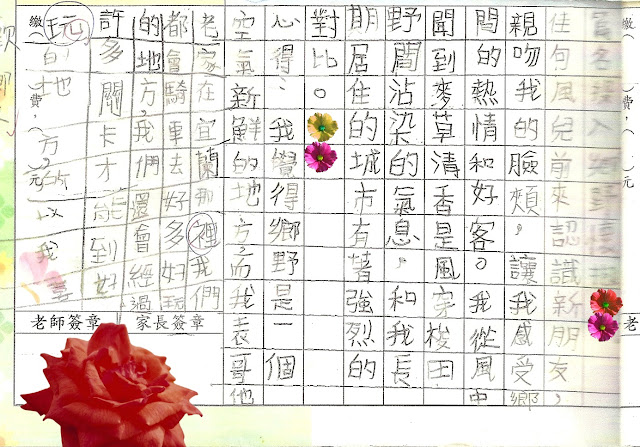 佳句風兒前來認識新朋友，
親吻我的臉頰，讓我感受鄉
間的熱情和好客。我從風中
聞到麥草清香是風穿梭田
野間沾染的氣息，和我長
期居住的城市有著強烈的
對比。
心得：我覺得鄉野是一個
空氣新鮮的地方，而我表哥他
老家在宜蘭那裡我們
都會騎車去好多好玩
的地方，我們還會經過
許多關卡才能到好
玩的地方所以我
家長簽章
老師簽章
繳（　）費，（　）元